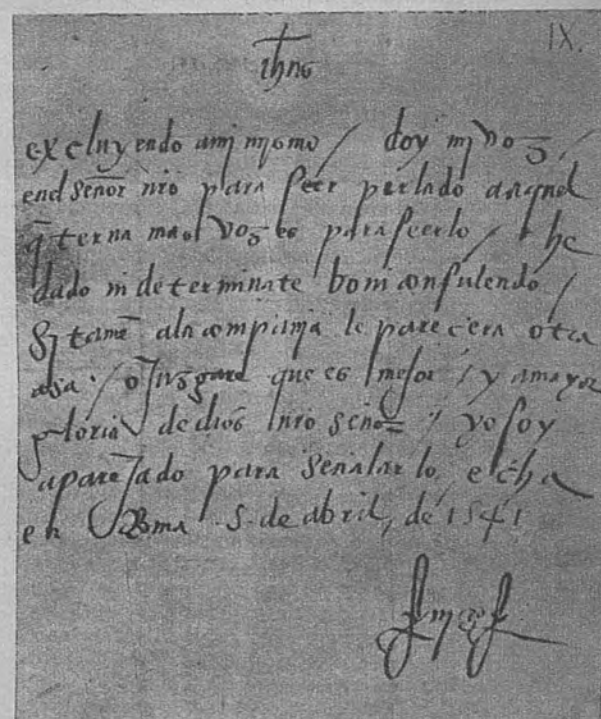 IX.
ihus
excluyendo a mj mjsmo / doy mj voz /
en el señor nrō para seer perlado a aquel
q̄ terna mas vozes para seerlo / he
dado indeterminate boni consulendo /
Sj tamē a la compañja le pareçera otra
cosa / o juzgare que es mejor / y a mayor
gloria de dios nrō señor / yo soy
aparejado para señalarlo. echa
en Roma 5. de abril, de 1541